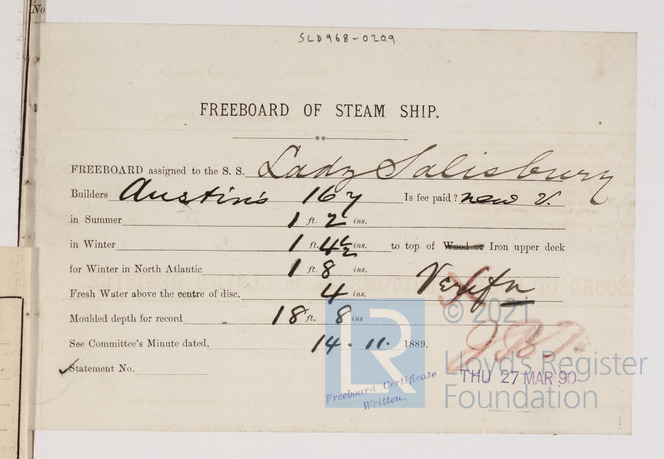 No
SLD968-0209
FREEBOARD OF STEAM SHIP.
FREEBOARD assigned to the S. S. Lady Salisbury
Builders Austin's 167 Is fee paid? new V.
in Summer 1 ft. 2 ins.
in Winter 1 ft. 4½ ins. to top of Wood or Iron upper deck
for Winter in North Atlantic 1 ft. 8 ins.
Fresh Water above the centre of disc. 4 ins. Verifn
Moulded depth for record 18 ft. 8 ins
See Committee's Minute dated, 14 . 11. 1889.
Statement No.
Freeboard Certificate
Written.
THU 27 MAR 90
© 2021
LR
Lloyd's Register
Foundation